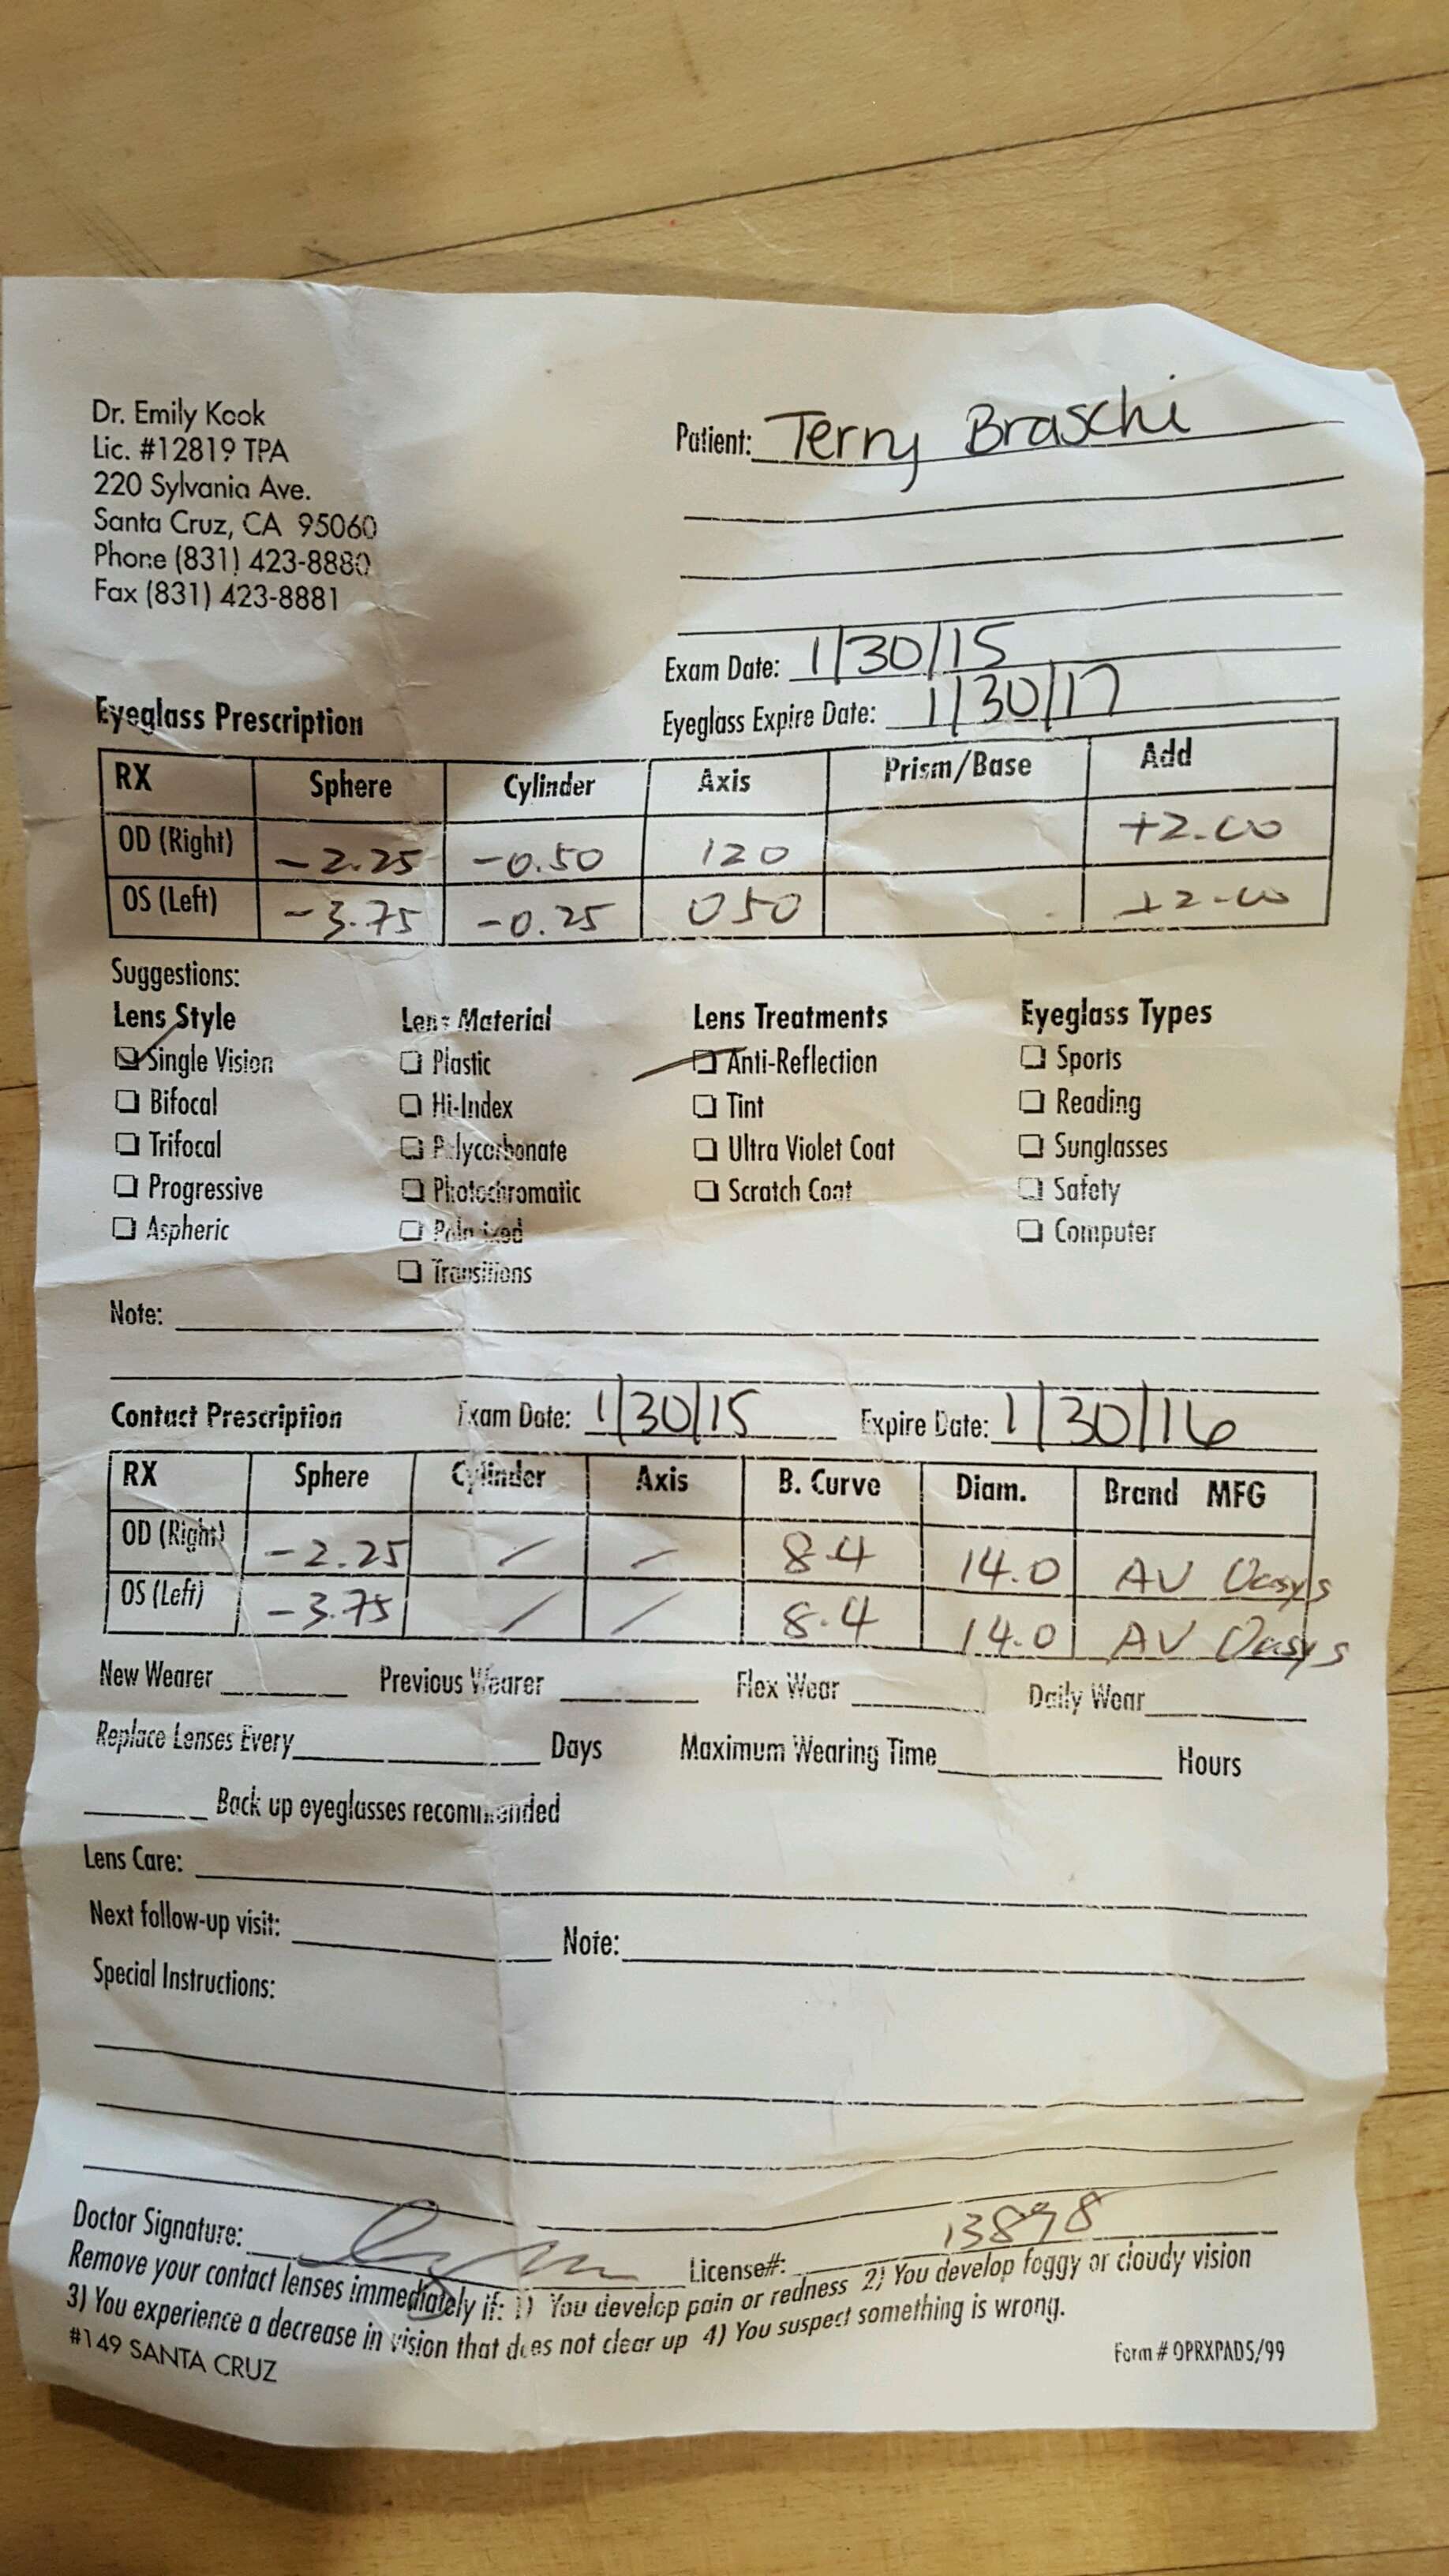 Dr. Emily Kook
Lic. #12819 TPA
220 Sylvania Ave.
Santa Cruz, CA 95060
Phone (831) 423-8880
Fax (831) 423-8881
Patient: Terry Braschi
Exam Date: 1/30/15
Eyeglass Expire Date: 1/30/17
Eyeglass Prescription
RX Sphere Cylinder Axis Prism/Base Add
OD (Right) -2.25 -0.50 120 +2.00
OS (Left) -3.75 -0.25 050 +2.00
Suggestions:
Lens Style Lens Material Lens Treatments Eyeglass Types
Single Vision Plastic Anti-Reflection Sports
Bifocal Hi-Index Tint Reading
Trifocal Polycarbonate Ultra Violet Coat Sunglasses
Progressive Photochromatic Scratch Coat Safety
Aspheric Polarized Computer
Transitions
Note:
Contact Prescription Exam Date: 1/30/15 Expire Date: 1/30/16
RX Sphere Cylinder Axis B. Curve Diam. Brand MFG
OD (Right) -2.25 / / 8.4 14.0 AV Oasys
OS (Left) -3.75 / / 8.4 14.0 AV Oasys
New Wearer Previous Wearer Flex Wear Daily Wear
Replace Lenses Every Days Maximum Wearing Time Hours
Back up eyeglasses recommended
Lens Care:
Next follow-up visit: Note:
Special Instructions:
Doctor Signature: License#: 13898
Remove your contact lenses immediately if: 1) You develop pain or redness 2) You develop foggy or cloudy vision
3) You experience a decrease in vision that does not clear up 4) You suspect something is wrong.
#149 SANTA CRUZ
Form # OPRXPAD5/99